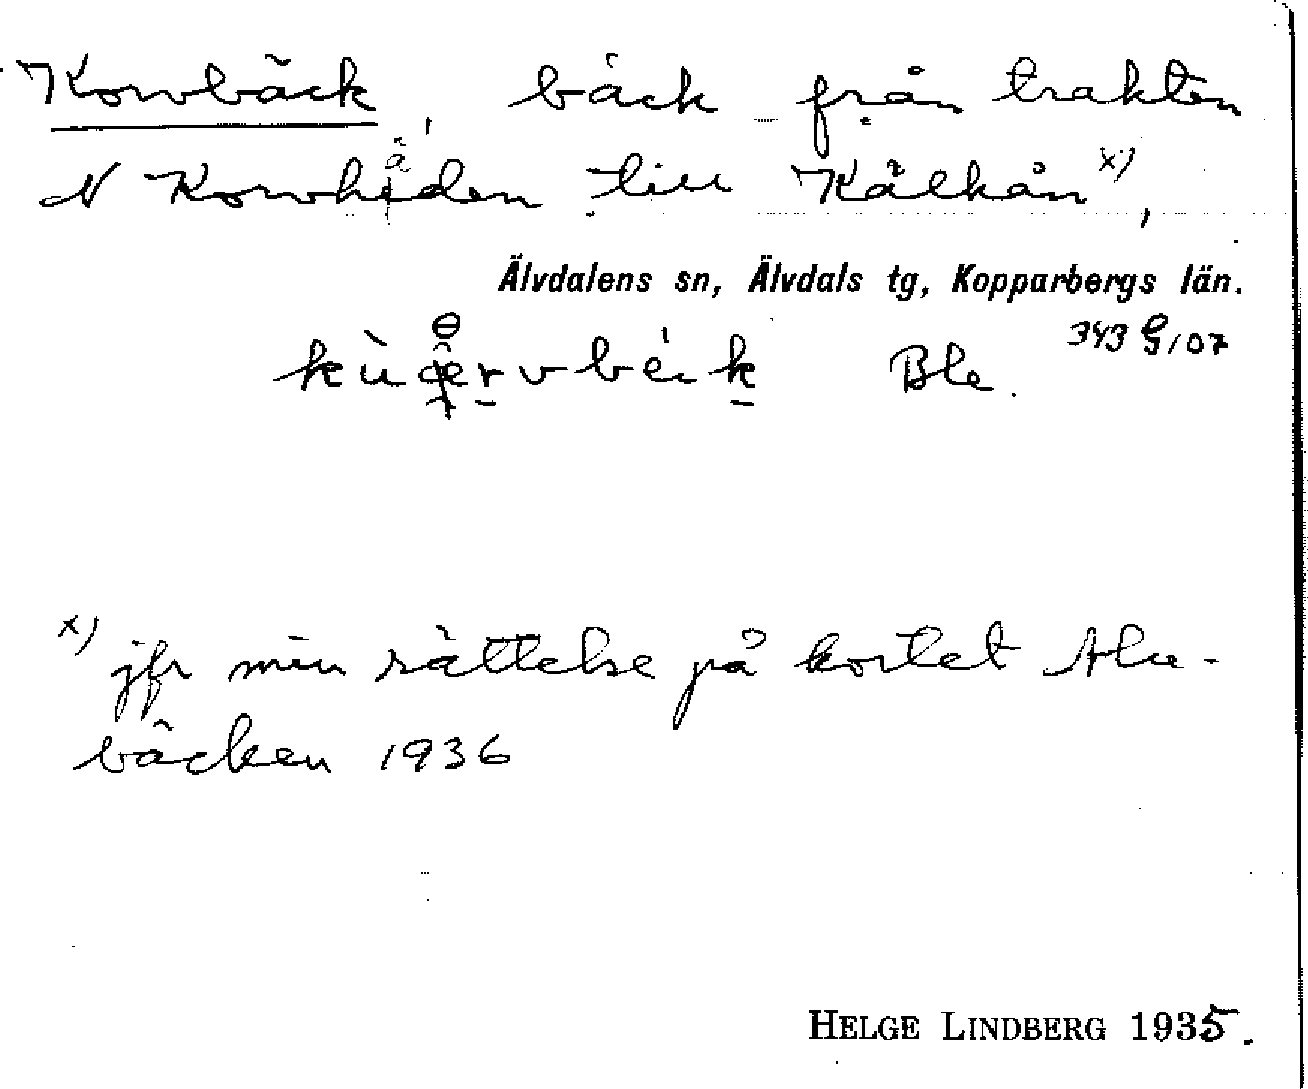 Korvbäck, bäck från trakten
N Korvhäden till Kälkån x),
Älvdalens sn, Älvdals tg, Kopparbergs län.
Ble.
x) jfr min rättelse på kortet Ale-
bäcken 1936
HELGE LINDBERG 1935.